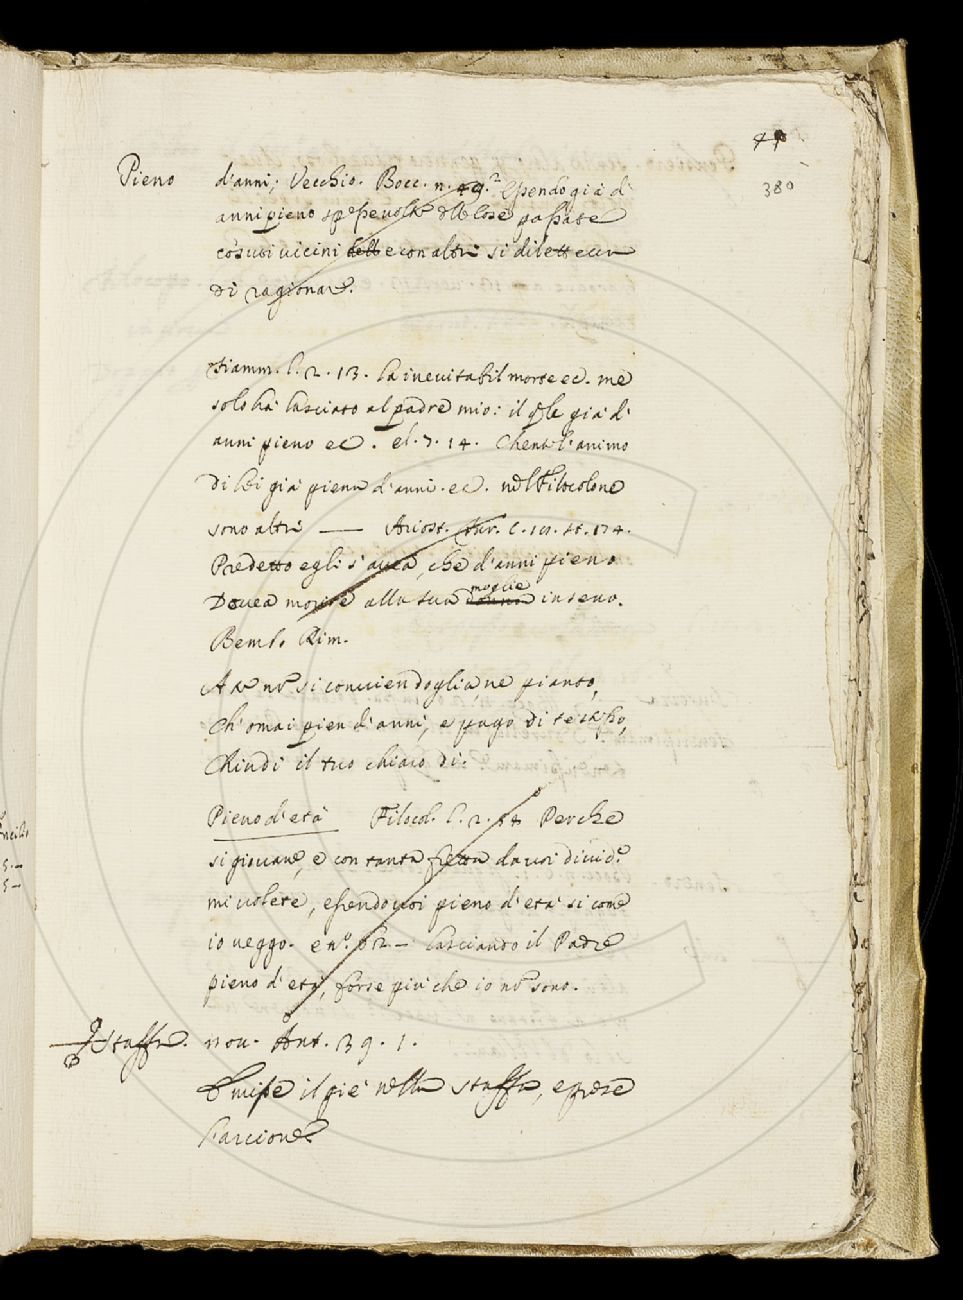 380
Pieno d'anni; Vecchio. Bocc. n. 49. Essendo già d'
anni pieno spesse volte delle cose passate
co' suoi vicini dell e con altri si dilettava
di ragionare.
Fiamm. l. 2. 13. la inevitabil morte ec. me
solo hà lasciato al padre mio: il qle già d'
anni pieno ec. el. 7. 14. Chent'l'animo
di lei già piena d'anni. ec. nel Filocolone
sono altri — Ariost. fur. C. 19. st. 174.
Predetto egli s'avea, che d'anni pieno
Dovea morire alla sua donna moglie in seno.
Bembo Rim.
A te nō si convien doglia, ne pianto,
Ch'omai pien d'anni, e pago di te stesso,
Chiudi il tuo chiaro dì:
Pieno d'età Filocol. l. 2. 54 Perche
si giovane, e con tanta fretta da voi divider
mi volete, essendo voi pieno d'età si come
io veggo. e n.° 62 — lasciando il Padre
pieno d'età, forse più che io nō sono.
Staffa. nov. Ant. 39. 1.
E mise il piè nella staffa, e prese
l'arcione